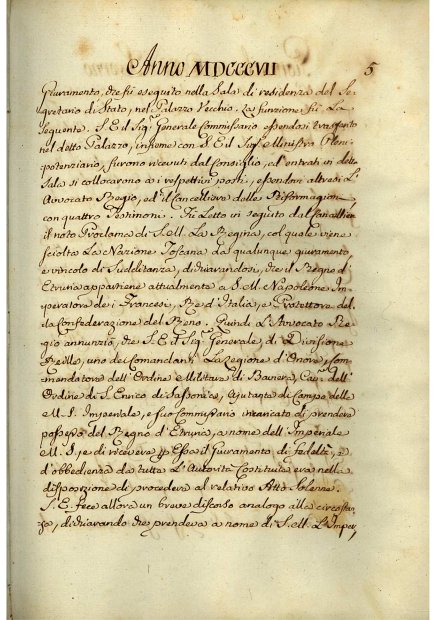 Anno MDCCCVII 5
Giuramento, che fù eseguito nella Sala di residenza del Se,
gretario di Stato, nel Palazzo Vecchio. La funzione fù La
Seguente. S. E. il Sig.r Generale Commissario essendosi trasferito
nel detto Palazzo, insieme con S. E. il Sig.r Ministro Pleni,
potenziario, furono ricevuti dal Consiglio, ed entrati in detta
Sala si collocarono a i respettivi posti, essendovi altresì L'
Avvocato Regio, ed il Cancelliere delle Riformagioni,
con quattro Testimoni. Fù Letto in seguito dal Cancelliere
il noto Proclama di S. M. La Regina, col quale viene
sciolta La Nazione Toscana da qualunque giuramento,
e vincolo di Sudditanza, dichiarandosi, che il Regno d'
Etruria appartiene attualmente a S. M. Napoleone Im,
peratore de i Francesi, Re d'Italia, e Protettore del,
la Confederazione del Reno. Quindi L'Avvocato Re,
gio annunziò, che S. E. il Sig.r Generale, di Divisione
Reille, uno de Comandanti La Legione d'Onore, Com,
mendatore dell'Ordine Militare di Baviera, Cav.r dell'
Ordine di S. Enrico di Sassonia, Ajutante di Campo della
M. S. Imperiale, e suo Commissario incaricato di prendere
possesso del Regno d'Etruria, a nome dell'Imperiale
M. S., e di ricevere p Essa il Giuramento di fedeltà, e
d'obbedienza da tutte L'Autorità Costituite era nella
disposizione di procedere al relativo Atto Solenne.
S. E. fece allora un breve discorso analogo alla circostan,
za, dichiarando che prendeva a nome di S. M. L'Imper,